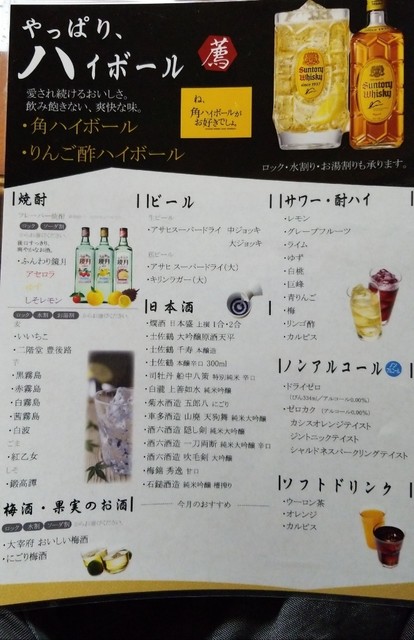 やっぱり、
ハイボール
薦
愛され続けるおいしさ。
飲み飽きない、爽快な味。
ね、
角ハイボールが
お好きでしょ。
・角ハイボール
・りんご酢ハイボール
SUNTORY
WHISKY
Suntory
Whisky
ロック・水割り・お湯割りも承ります。
焼酎
フレーバー焼酎
ロック ソーダ割
・ふんわり鏡月
アセロラ
ゆず
しそレモン
麦 ロック 水割 お湯割
・いいちこ
・二階堂 豊後路
芋
・黒霧島
・赤霧島
・白霧島
・茜霧島
・白波
ごま
・紅乙女
しそ
・鍛高譚
梅酒・果実のお酒
ロック 水割 ソーダ割
・大宰府 おいしい梅酒
・にごり梅酒
ビール
生ビール
・アサヒスーパードライ 中ジョッキ
大ジョッキ
瓶ビール
・アサヒ スーパードライ(大)
・キリンラガー(大)
日本酒
・燗酒 日本盛 上撰 1合・2合
・土佐鶴 大吟醸原酒天平
・土佐鶴 千寿 本醸造
・土佐鶴 本醸辛口 300ml
・司牡丹 船中八策 特別純米 辛口
・白瀧 上善如水 純米吟醸
・菊水酒造 五郎八 にごり
・車多酒造 山廃 天狗舞 純米大吟醸
・酒六酒造 隠し剣 純米吟醸
・酒六酒造 一刀両断 純米大吟醸 辛口
・酒六酒造 吹毛剣 大吟醸
・梅錦 秀逸 甘口
・石鎚酒造 純米吟醸 槽搾り
今月のおすすめ
サワー・酎ハイ
・レモン
・グレープフルーツ
・ライム
・ゆず
・白桃
・巨峰
・青りんご
・梅
・リンゴ酢
・カルピス
ノンアルコール
・ドライゼロ
(びん334ml/アルコール0.00%)
・ゼロカク (アルコール0.00%)
カシスオレンジテイスト
ジントニックテイスト
シャルドネスパークリングテイスト
ソフトドリンク
・ウーロン茶
・オレンジ
・カルピス